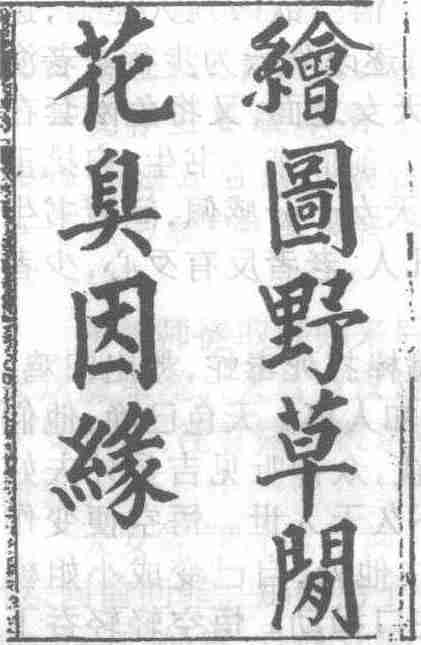 繪圖野草閒
花臭因緣